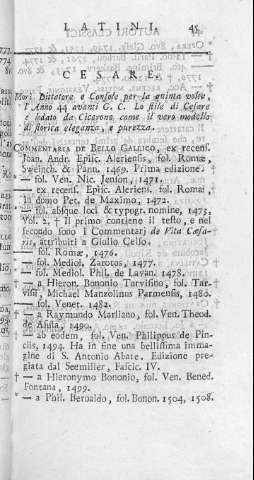 LATINI. 45
CESARE.
Morì Dittatore e Console per la quinta volta
l'Anno 44 avanti G. C. Lo stile di Cesare
è lodato da Cicerone come il vero modello
di storica eleganza, e purezza.
COMMENTARIA DE BELLO GALLICO, ex recens.
Joan. Andr. Episc. Aleriensis, fol. Romæ,
Sweinch. & Pann. 1469. Prima edizione.
— fol. Ven. Nic. Jenson, 1471.
— ex recens. Episc. Aleriens. fol. Romæ
in domo Pet. de Maximo, 1472.
— fol. absque loci & typogr. nomine, 1473,
Vol. 2. Il primo contiene il testo, e nel
secondo sono i Commentarj de Vita Cæsa-
ris, attribuiti a Giulio Celso.
— fol. Romæ, 1476.
— fol. Mediol. Zarotus, 1477.
— fol. Mediol. Phil. de Lavan. 1478.
— a Hieron. Bononio Tarvisino, fol. Tar-
visii, Michael Manzolinus Parmensis, 1480.
— fol. Venet. 1482.
— a Raymundo Marliano, fol. Ven. Theod.
de Asula, 1490.
— ab eodem, fol. Ven. Philippus de Pin-
ciis, 1494. Ha in fine una bellissima imma-
gine di S. Antonio Abate. Edizione pre-
giata dal Seemiller, Fascic. IV.
— a Hieronymo Bononio, fol. Ven. Bened.
Fontana, 1499.
— a Phil. Beroaldo, fol. Bonon. 1504, 1508.